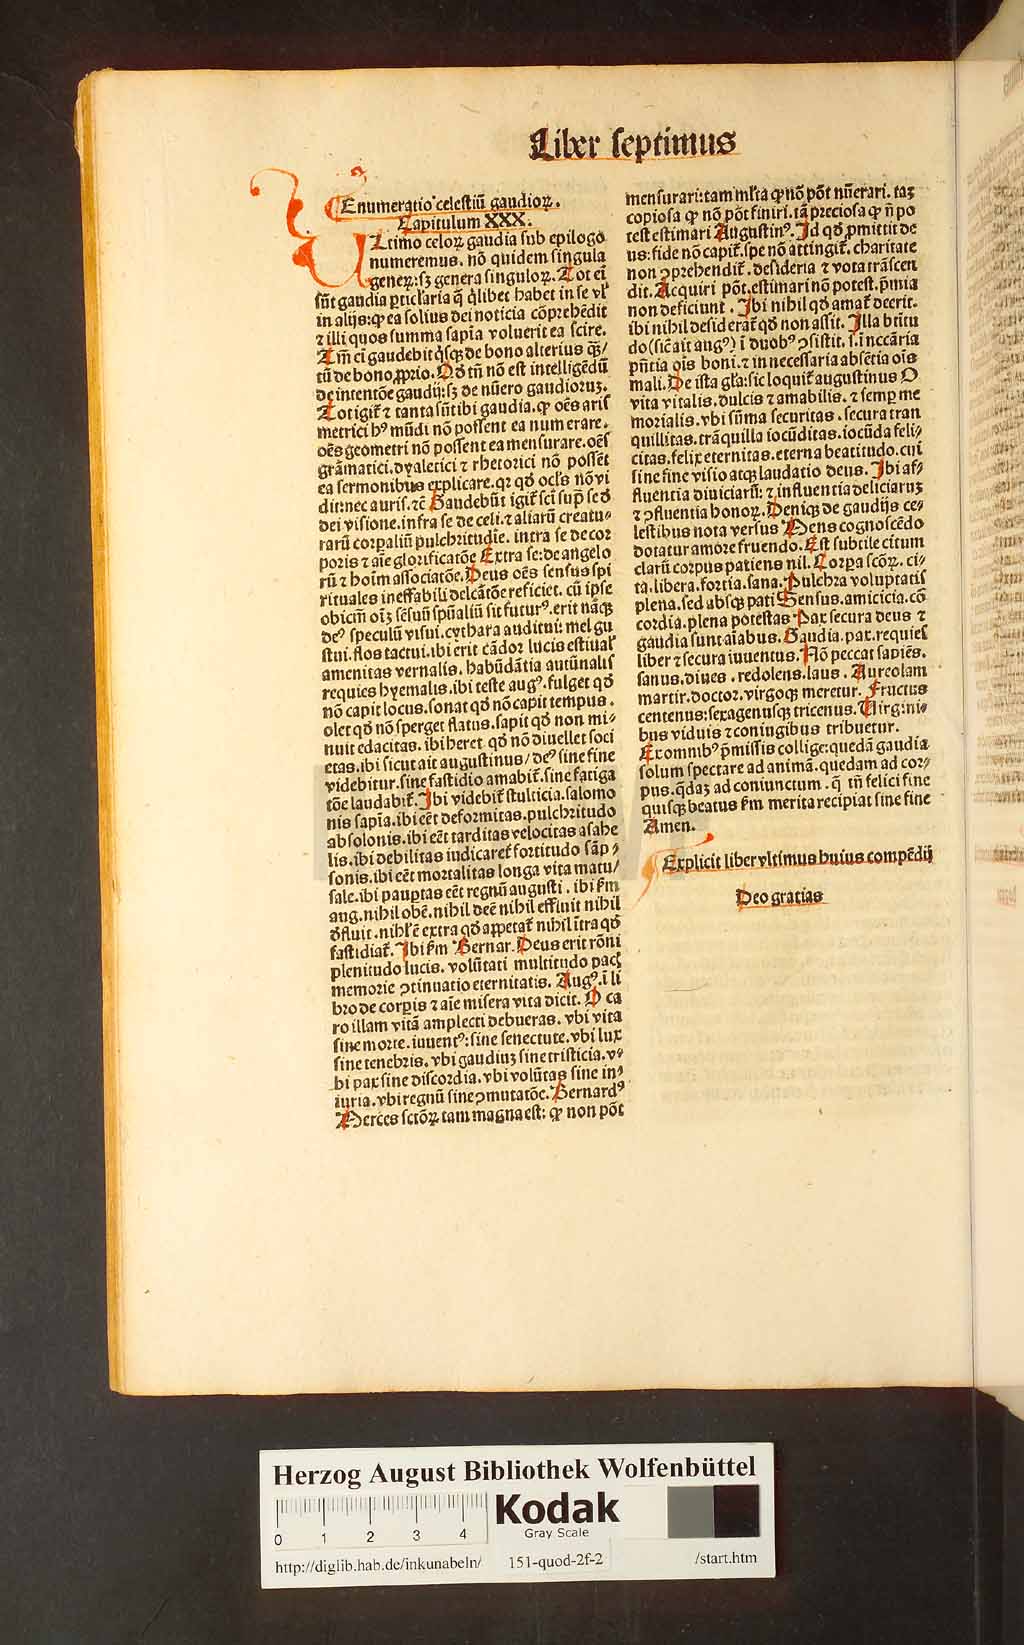 Liber septimus
Enumeratio celestiū gaudioꝝ.
Capitulum XXX.
Ultimo celoꝝ gaudia sub epilogo
numeremus. nō quidem singula
geneꝝ: sꝫ genera singuloꝝ. Tot eī
sūt gaudia pticl'aria q̄ q̄libet habet in se vl'
in alijs: ꝙ ea solius dei noticia cōprehēdit
⁊ illi quos summa sapīa voluerit ea scire.
de bono alterius
tū de bono ꝓprio. Qd̄ tn̄ nō est intelligēdū
de intentōe gaudij: sꝫ de nūero gaudioruꝫ.
Tot igit̄ ⁊ tanta sūt ibi gaudia. ꝙ oēs aris
metrici hꝰ mūdi nō possent ea numerare.
oēs geometri nō possent ea mensurare. oēs
grāmatici. dyaletici ⁊ rhetorici nō possēt
ea sermonibus explicare. qꝛ qd̄ ocl's nō vi
dit: nec auris. ⁊c̄ Gaudebūt igit̄ sci sup̄ se d̄
dei visione. infra se de celi. ⁊ aliarū creatu-
rarū corpaliū pulchritudīe. intra se de cor
poris ⁊ aīe glorificatōe Extra se: de angelo
rū ⁊ hoīm associatōe. Deus oēs sensus spi
rituales ineffabili delcātōe reficiet. cū ipse
obiectū oīꝫ sēsuū spūaliū sit futurꝰ. erit nāqꝫ
deꝰ speculū visui. cythara auditui: mel gu
stui. flos tactui. ibi erit cādor lucis estiual'
amenitas vernalis. habūdātia autūnalis
requies hyemalis. ibi teste augꝰ. fulget qd̄
nō capit locus. sonat qd̄ nō capit tempus.
olet qd̄ nō sperget flatus. sapit qd̄ non mi-
nuit edacitas. ibi heret qd̄ nō diuellet soci
etas. ibi sicut ait augustinus/ deꝰ sine fine
videbitur. sine fastidio amabit̄. sine fatiga
tōe laudabit̄. Ibi videbit̄ stulticia. salomo
nis sapīa. ibi eēt deformitas. pulchritudo
absolonis. ibi eēt tarditas velocitas asahe
lis. ibi debilitas iudicaret̄ fortitudo sāp-
sonis. ibi eēt mortalitas longa vita matu/
sale. ibi pauptas eēt regnū augusti. ibi ẜm
aug. nihil obē. nihil deē nihil effluit nihil
d̄fluit. nihl'ē extra qd̄ appetat̄ nihil ītra qd̄
fastidiat̄. Ibi ẜm Bernar. Deus erit rōni
plenitudo lucis. volūtati multitudo pacꝭ
memorie ꝯtinuatio eternitatis. Augꝰ. ī li
bro de corpis ⁊ aīe misera vita dicit. O ca
ro illam vitā amplecti debueras. vbi vita
sine morte. iuuentꝰ: sine senectute. vbi lux
sine tenebris. vbi gaudiuꝫ sine tristicia. v-
bi pax sine discordia. vbi volūtas sine in-
iuria. vbi regnū sine ꝯmutatōe. Bernardꝰ
Merces sctōꝝ tam magna est: ꝙ non pōt
mensurari: tam ml'ta ꝙ nō pōt nūerari. taꝫ
copiosa ꝙ nō pōt finiri. tā preciosa ꝙ n̄ po
test estimari Augustinꝰ. Id qd̄ ꝓmittit de
us: fide nō capit̄. spe nō attingit̄. charitate
non ꝯprehendit̄. desideria ⁊ vota trāscen
dit. Acquiri pōt. estimari nō potest. p̄mia
non deficiunt. Ibi nihil qd̄ amat̄ deerit.
ibi nihil desiderat̄ qd̄ non assit. Illa btītu
do (sic̄ ait augꝰ) ī duobꝰ ꝯsistit. s. ī nccāria
pn̄tia ois boni. ⁊ in necessaria absētia ois
mali. De ista gl'a: sic loquit̄ augustinus O
vita vitalis. dulcis ⁊ amabilis. ⁊ semp me
morialis. vbi sūma securitas. secura tran
quillitas. trāquilla iocūditas. iocūda feli-
citas. felix eternitas. eterna beatitudo. cui
sine fine visio atqꝫ laudatio deus. Ibi af-
fluentia diuiciarū: ⁊ influentia deliciaruꝫ
⁊ ꝯfluentia honoꝝ. Deniqꝫ de gaudijs ce-
lestibus nota versus Mens cognoscēdo
dotatur amore fruendo. Est subtile citum
clarū corpus patiens nil. Corpa scōꝝ. ci-
ta. libera. fortia. sana. Pulchra voluptatis
plena. sed absqꝫ pati Sensus. amicicia. cō
cordia. plena potestas Pax secura deus ⁊
gaudia sunt aīabus. Gaudia. pax. requies
liber ⁊ secura iuuentus. Nō peccat sapiēs.
sanus. diues. redolens. laus. Aureolam
martir. doctor. virgoqꝫ meretur. Fructus
centenus: sexagenusqꝫ tricenus. Virgini-
bus viduis ⁊ coniugibus tribuetur.
Ex omnibꝰ p̄missis collige: quedā gaudia
solum spectare ad animā. quedam ad cor-
pus. q̄daꝫ ad coniunctum. q̄ tn̄ felici fine
quisqꝫ beatus ẜm merita recipiat sine fine
Amen.
Explicit liber vltimus huius compēdij
Deo gratias
Herzog August Bibliothek Wolfenbüttel
0 1 2 3 4
Kodak
Gray Scale
http://diglib.hab.de/inkunabeln/ 151-quod-2f-2 /start.htm